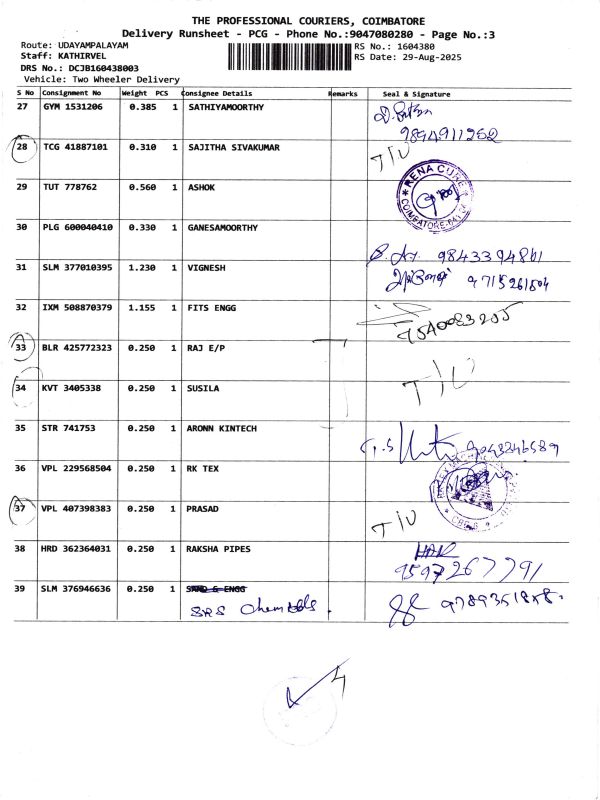 THE PROFESSIONAL COURIERS, COIMBATORE
Delivery Runsheet - PCG - Phone No.:9047080280 - Page No.:3
Route: UDAYAMPALAYAM
RS No.: 1604380
Staff: KATHIRVEL
RS Date: 29-Aug-2025
DRS No.: DCJB160438003
Vehicle: Two Wheeler Delivery
S No Consignment No Weight PCS Consignee Details Remarks Seal & Signature
27 GYM 1531206 0.385 1 SATHIYAMOORTHY
9894911252
28 TCG 41887101 0.310 1 SAJITHA SIVAKUMAR T/U
29 TUT 778762 0.560 1 ASHOK
RENA CURE
COIMBATORE
30 PLG 600040410 0.330 1 GANESAMOORTHY
31 SLM 377010395 1.230 1 VIGNESH
9715261504
32 IXM 508870379 1.155 1 FITS ENGG
33 BLR 425772323 0.250 1 RAJ E/P
34 KVT 3405338 0.250 1 SUSILA
T/U
35 STR 741753 0.250 1 ARONN KINTECH
36 VPL 229568504 0.250 1 RK TEX
37 VPL 407398383 0.250 1 PRASAD T/U
38 HRD 362364031 0.250 1 RAKSHA PIPES
9597267791
39 SLM 376946636 0.250 1
SRS Chemicals.